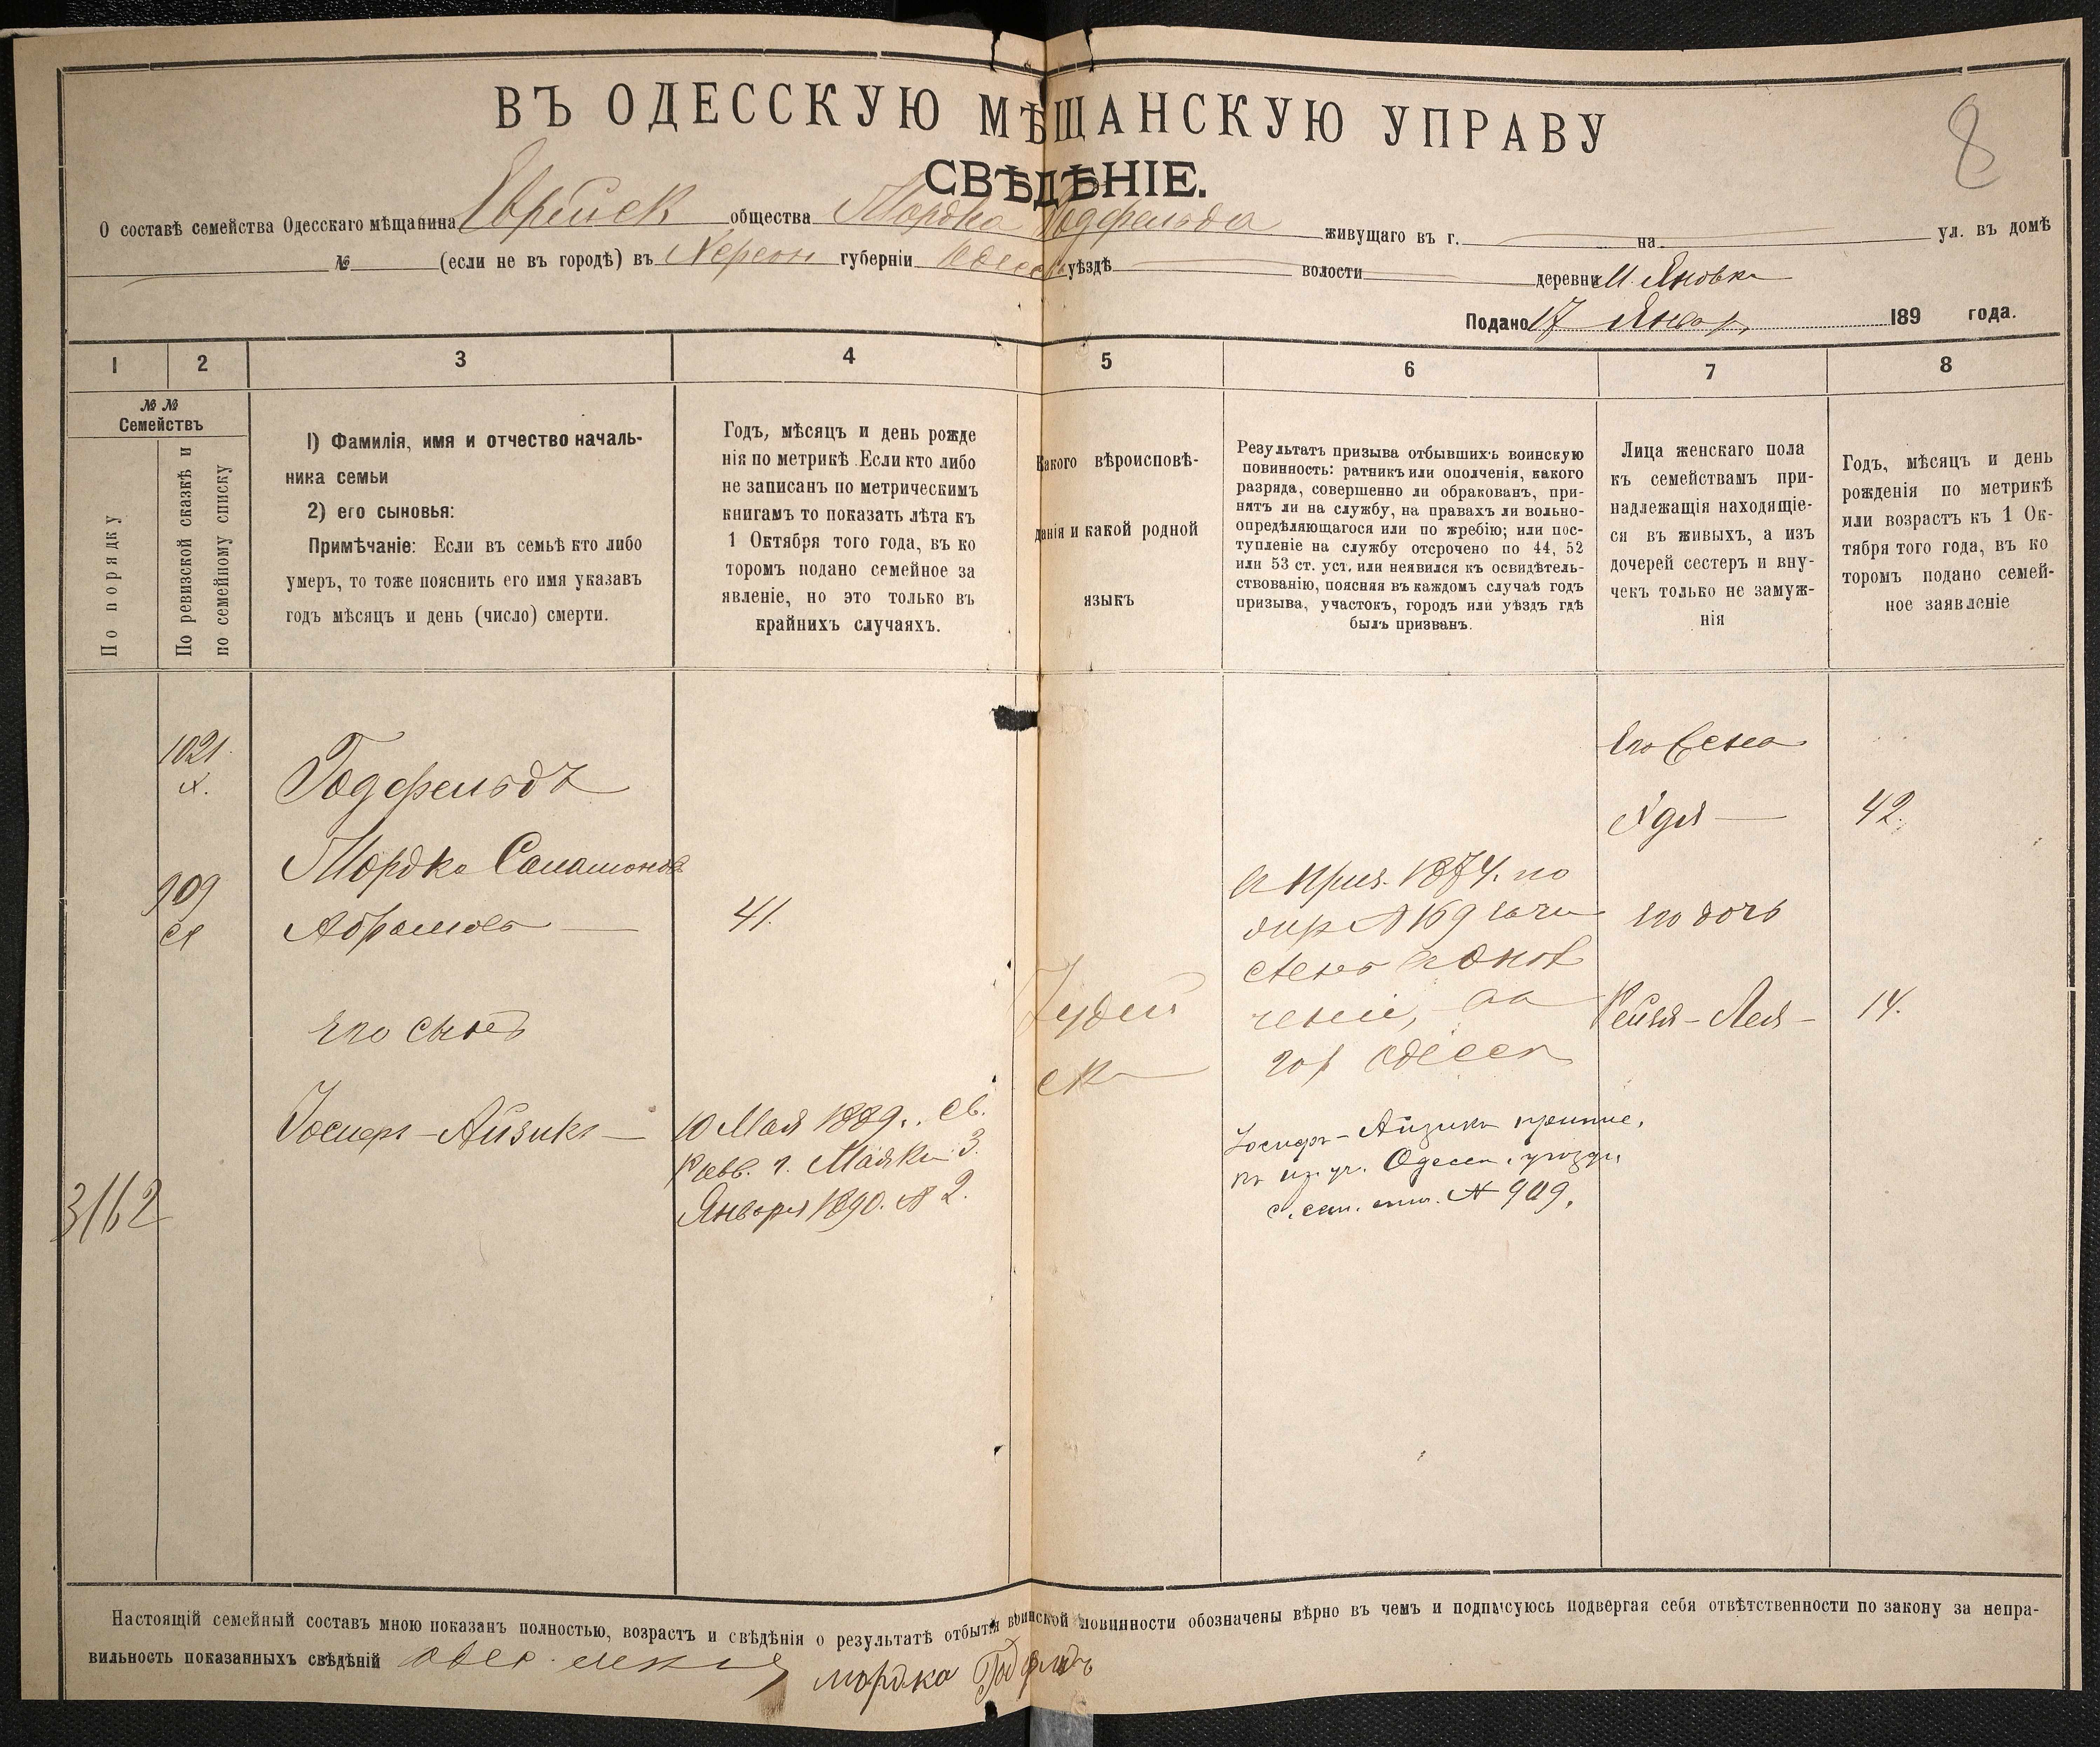 8
ВЪ ОДЕССКУЮ МѢЩАНСКУЮ УПРАВУ
СВѢДѢНІЕ.
О составѣ семейства Одесскаго мѣщанина Еврейск общества Мордка Годфельда живущаго въ г. на ул. въ домѣ
№ (если не въ городѣ) въ Херсон губерніи Одесск уѣздѣ волости деревни М. Яновка
Подано 17 Январ 189 года.
1 2 3 4 5 6 7 8
№ №
Семействъ
По порядку
По ревизской сказкѣ и
по семейному списку
1) Фамилія, имя и отчество началь-
ника семьи
2) его сыновья:
Примѣчаніе: Если въ семьѣ кто либо
умеръ, то тоже пояснить его имя указавъ
годъ мѣсяцъ и день (число) смерти.
Годъ, мѣсяцъ и день рожде
нія по метрикѣ. Если кто либо
не записанъ по метрическимъ
книгамъ то показать лѣта къ
1 Октября того года, въ ко
торомъ подано семейное за
явленіе, но это только въ
крайнихъ случаяхъ.
Какого вѣроисповѣ-
данія и какой родной
языкъ
Результатъ призыва отбывшихъ воинскую
повинность: ратникъ или ополченія, какого
разряда, совершенно ли обракованъ, при-
нятъ ли на службу, на правахъ ли вольно-
опредѣляющагося или по жребію; или пос-
тупленіе на службу отсрочено по 44, 52
или 53 ст. уст. или неявился къ освидѣтель-
ствованію, поясняя въ каждомъ случаѣ годъ
призыва, участокъ, городъ или уѣздъ гдѣ
былъ призванъ.
Лица женскаго пола
къ семействамъ при-
надлежащія находящіе-
ся въ живыхъ, а изъ
дочерей сестеръ и вну-
чекъ только не замуж-
нія
Годъ, мѣсяцъ и день
рожденія по метрикѣ
или возрастъ къ 1 Ок-
тября того года, въ ко
торомъ подано семей-
ное заявленіе
1021
Годфельдъ
Мордко Саламонов
909
Абрамовъ 41.
Его сынъ
Іосифъ-Айзикъ
10 Мая 1889 г. св.
Равв. г. Маяки 3.
Января 1890. № 2.
3162
Іудей
ск
1874. по
№ 169
гор Одесса
Іосифъ-Айзикъ припис.
къ пр. уч. Одесск. уѣзда,
№ 909.
Его жена
Хдя 42.
Его дочь
Рейзя-Лея 14.
Настоящій семейный составъ мною показанъ полностью, возрастъ и свѣдѣнія о результатѣ отбытія воинской повинности обозначены вѣрно въ чемъ и подписуюсь подвергая себя отвѣтственности по закону за непра-
вильность показанныхъ свѣдѣній
мордко Годфелдъ